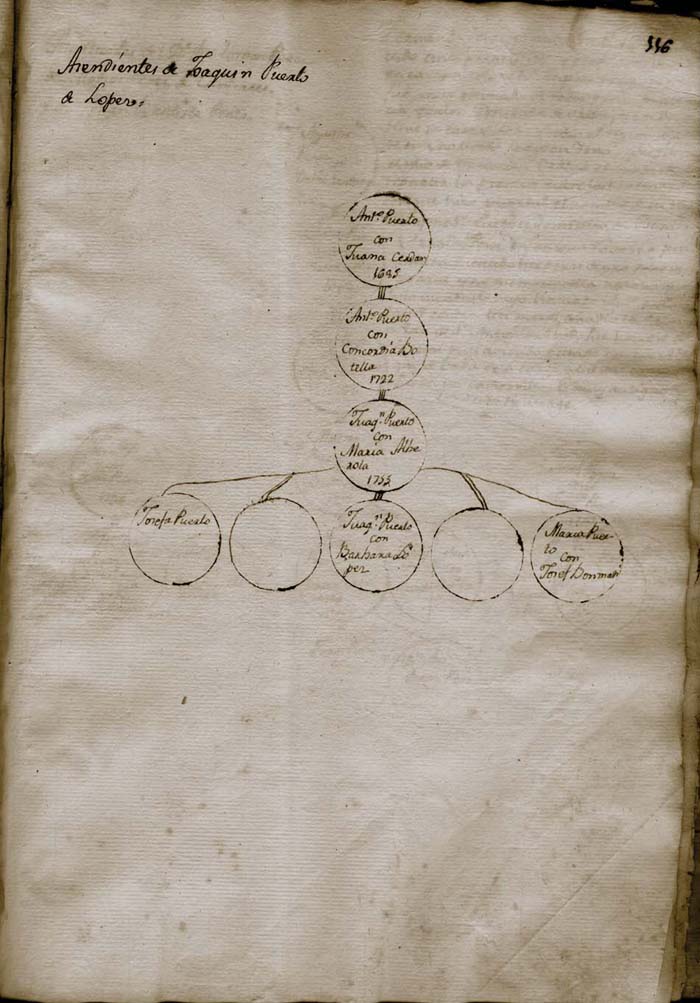 116
Asendientes de Joaquin Puerto
de Loper.
Ant.º Puerto
con
Juana Cerdan
1685
Ant.º Puerto
con
Concordia Bo
tella
1722
Juaq.n Puerto
con
Maria Albe
rola
1755
Josefa Puerto
Juaq.n Puerto
con
Barbara Lo
per
Maria Puer-
to
con
Josef Bonmati